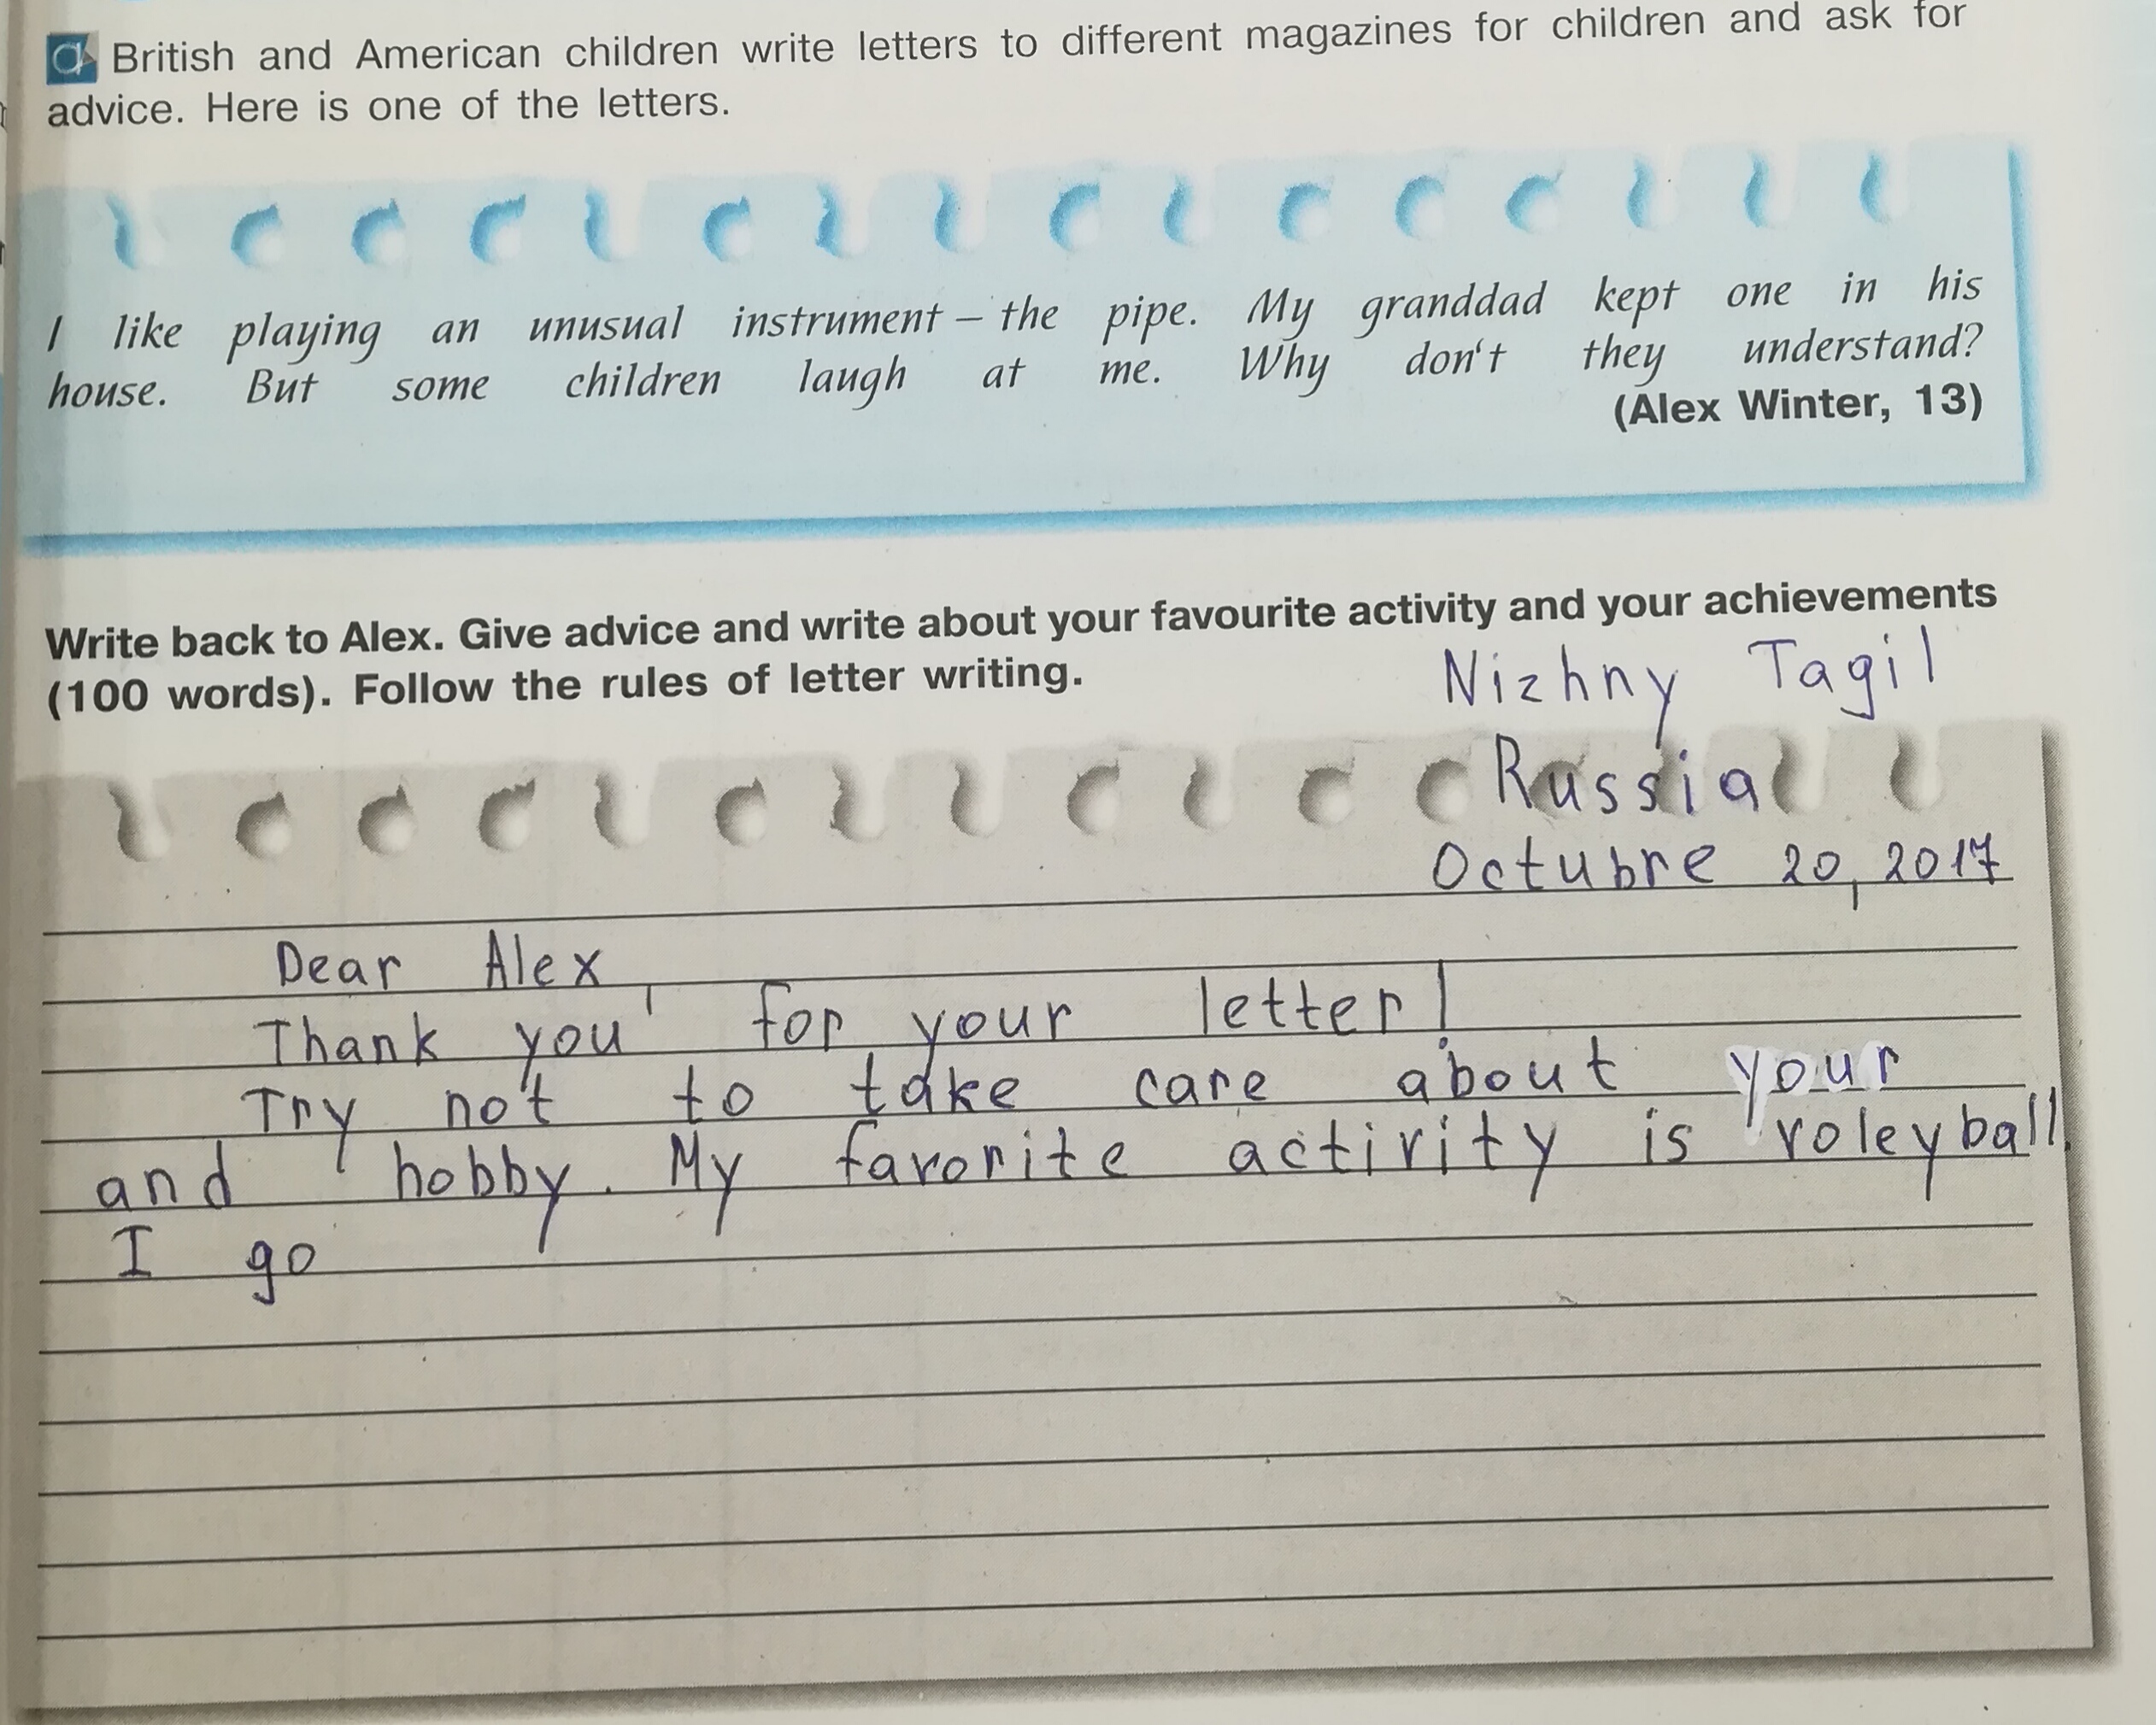 a British and American children write letters to different magazines for children and ask for
advice. Here is one of the letters.
I like playing an unusual instrument – the pipe. My granddad kept one in his
house. But some children laugh at me. Why don't they understand?
(Alex Winter, 13)
Write back to Alex. Give advice and write about your favourite activity and your achievements
(100 words). Follow the rules of letter writing.
Nizhny Tagil
Russia
Octubre 20, 2017
Dear Alex,
Thank you for your letter!
Try not to take care about your
and hobby. My favorite activity is voleyball.
I go